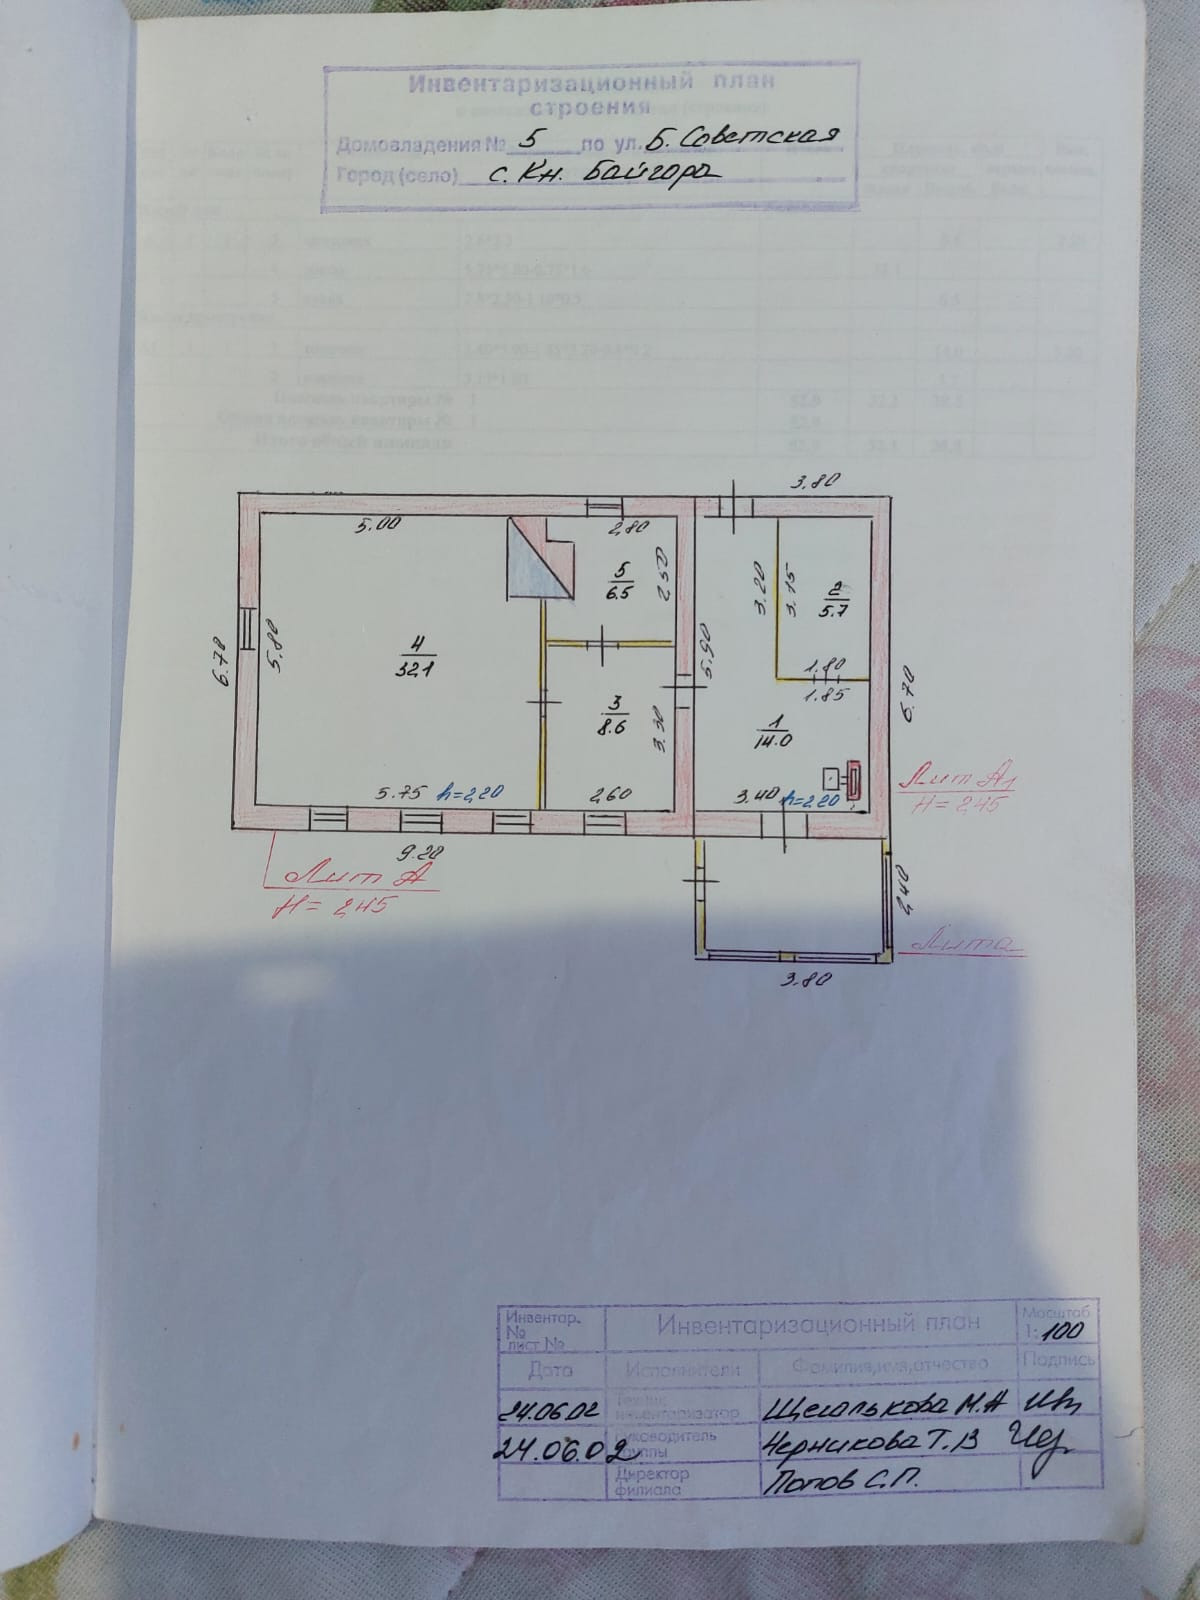 Инвентаризационный план
строения
Домовладения № 5 по ул. Б. Советская
Город (село) с. Кн. Байгора
3.80
5.00
2,80
5
6.5
2,50
3.20
3.15
2
5.7
6.70
5.80
4
32,1
5.90
1.80
1.85
6.70
3
8.6
3.30
1
14.0
5.75 h=2,20
2,60
3.40 h=2,20
Лит А1
H = 2,45
9.20
Лит А
H = 2,45
2,40
Лит а
3.80
Инвентар. №
лист №
Инвентаризационный план
Масштаб
1: 100
Дата
Исполнители
Фамилия,имя,отчество
Подпись
24.06.02
Техник инвентаризатор
Щегалькова М.А
24.06.02
Руководитель группы
Черникова Т.В
Директор филиала
Попов С.П.